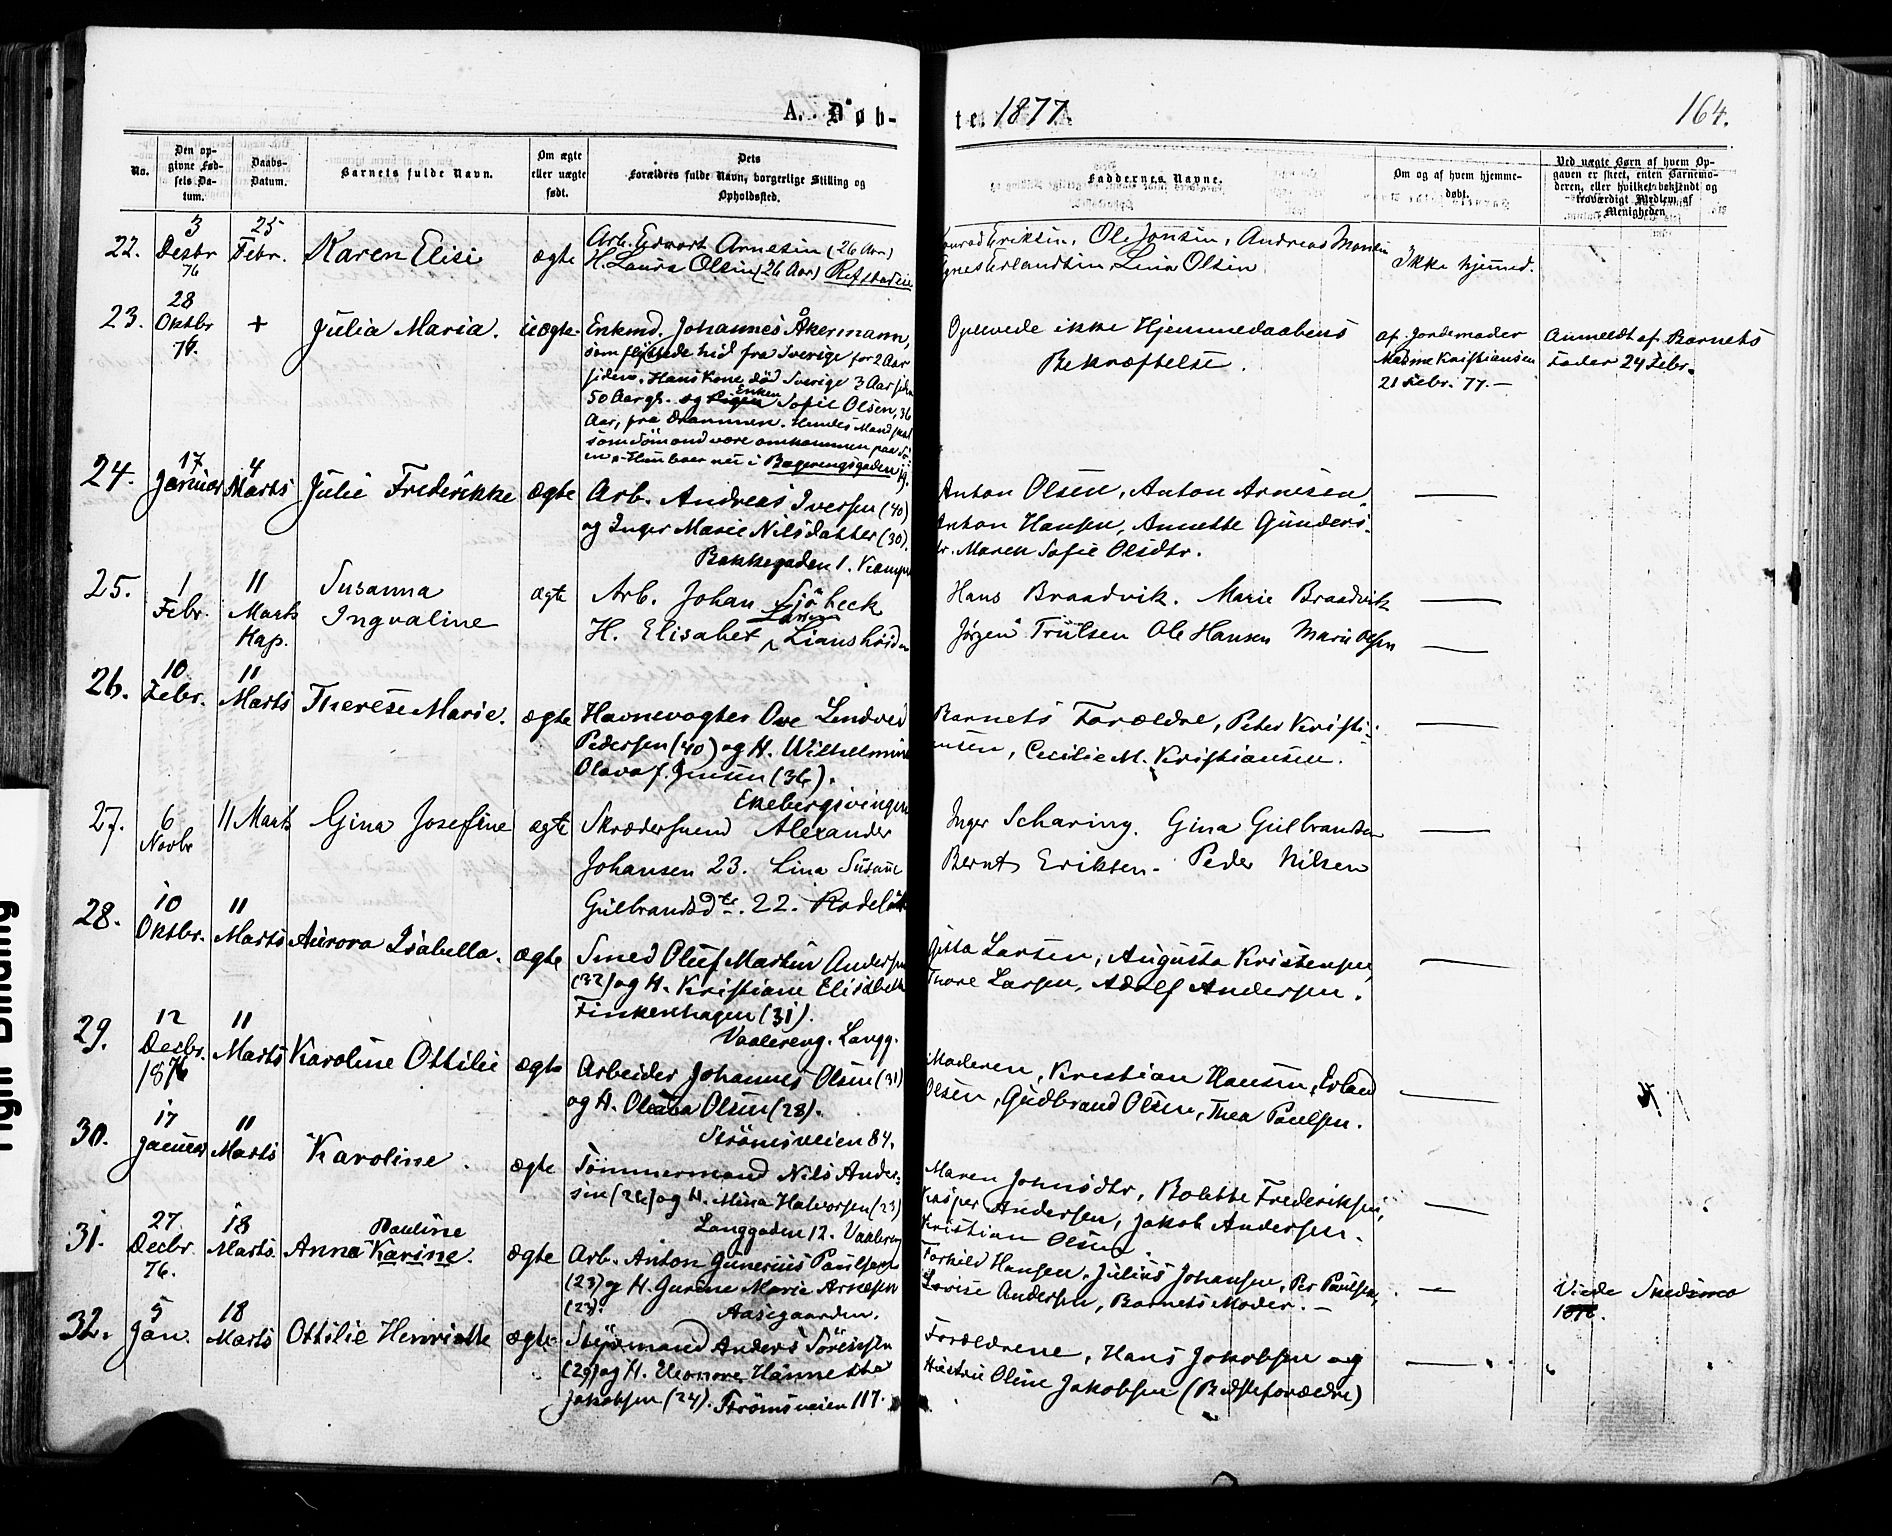 A. Døb-
te. 1877.
164.
No.
Den op-
givne Fød-
sels Da-
tum.
Daabs-
Datum.
Barnets fulde Navn.
Om ægte
eller uægte
født.
Dets
Forældres fulde Navn, borgerlige Stilling og
Opholdssted.
Faddernes Navne.
Om og af hvem hjemme-
døbt.
Ved uægte Børn af hvem Op-
gaven er skeet, enten Barnemo-
deren, eller hvilket bekjendt og
troværdigt Medlem af
Menigheden
22. 3 Desbr 76
25 Febr.
Karen Elise
ægte
Arb. Edvart Arnesen (26 Aar)
H. Laura Olsen (26 Aar)
Eriksen, Ole Jonsen, Andreas
Erlandsen, Lina Olsen
Ikke hjemmed.
23. 28 Oktbr 76.
+
Julia Maria.
uægte.
Enkmd. Johannes Åkermann,
som flyttede hid fra Sverige for 2 Aar
siden. Hans Kone død Sverige 3 Aar siden
50 Aar gl. og Enken Sofie Olsen, 36
Aar, fra Drammen. Hendes Mand skal
som Sömand være omkommen paa Sö-
en. Hun boer nu i
Oplevede ikke Hjemmedaabens
Bekræftelse.
af Jordemoder
Madme Kristiansen
21 Febr. 77. —
Anmeldt af Barnets
Fader 24 Febr.
24. 17 Januar
4 Marts
Julie Frederikke
ægte
Arb. Andreas Iversen (40)
og Inger Marie Nilsdatter (30).
Bakkegaden 1. Kampen
Anton Olsen, Anton Arnesen
Anton Hansen, Annette Gunders-
dr. Maren Sofie Olsdtr.
25. 1 Febr.
11 Marts Kap.
Susanna
Ingvaline
ægte
Arb. Johan Sjöbeck
H. Elisabet Larsen
Hans Braadvik. Marie Braadvik
Jørgen Trulsen Ole Hansen Marie Olsen
26. 10 Febr.
11 Marts
Therese Marie.
ægte
Havnevogter Ove Lindved
Pedersen (40) og H. Wilhelmine
Olava f. Jensen (36).
Ekebergsvingen
Barnets Forældre, Peter Kristi-
ansen, Cecilie M. Kristiansen.
27. 6 Novbr
11 Marts
Gina Josefine
ægte
Skrædersvend Alexander
Johansen 23. Lina Susanne
Gulbrandsdtr. 22.
Inger Scharing. Gina Gulbrandsen
Bernt Eriksen. Peder Nilsen
28. 10 Oktbr.
11 Marts
Aurora Isabella.
ægte
Smed Oluf Martin Andersen
(32) og H. Kristiane Elisabeth
Finkenhagen (31).
Vaalereng. Langg.
Gitta Larsen, Augusta Kristensen,
Thore Larsen, Adolf Andersen.
29. 12 Decbr. 1876
11 Marts
Karoline Ottilie
ægte
Arbeider Johannes Olsen (31)
og H. Olea Olsen (28).
Strömsveien 84.
Moderen, Kristian Hansen, Erland
Olsen, Gudbrand Olsen, Thea Paulsen.
30. 17 Januar
11 Marts
Karoline.
ægte
Tömmermand Nils Ander-
sen (26) og H. Mina Halvorsen (23)
Langgaden 12. Vaalereng
Maren Johnsdtr, Bolette Frederiksen,
Kasper Andersen, Jakob Andersen.
Kristian Olsen
31. 27 Decbr. 76.
18 Marts
Pauline
Anna Karine.
ægte
Arb. Anton Gunerius Paulsen
(23) og H. Gurine Marie Arnesen
(23).
Aasegaarden.
Torkild Hansen. Julius Johansen, Per Paulsen,
Lovise Andersen, Barnets Moder. —
Viede Skedsmo
32. 5 Jan.
18 Marts
Ottilie Henriette
ægte
Styrmand Anders Sörensen
(29) og H. Eleonore Hannette
Jakobsen (24). Strömsveien 117.
Forældrene, Hans Jakobsen og
Hustrue Oline Jakobsen (Bedsteforældre)
Tight Binding